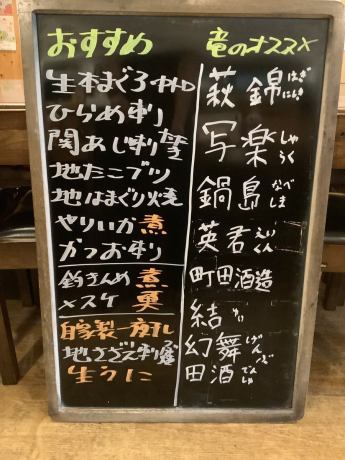 おすすめ
生本まぐろ中トロ
ひらめ刺
関あじ刺
地たこブツ
地はまぐり焼
やりいか煮
かつお刺
釣きんめ煮
メスケ煮
自家製一夜干し
地さざえ刺
生うに
竜のオススメ
萩錦 はぎにしき
写楽 しゃらく
鍋島 なべしま
英君 えいくん
町田酒造
結 ゆい
幻舞 げんぶ
田酒 でんしゅ